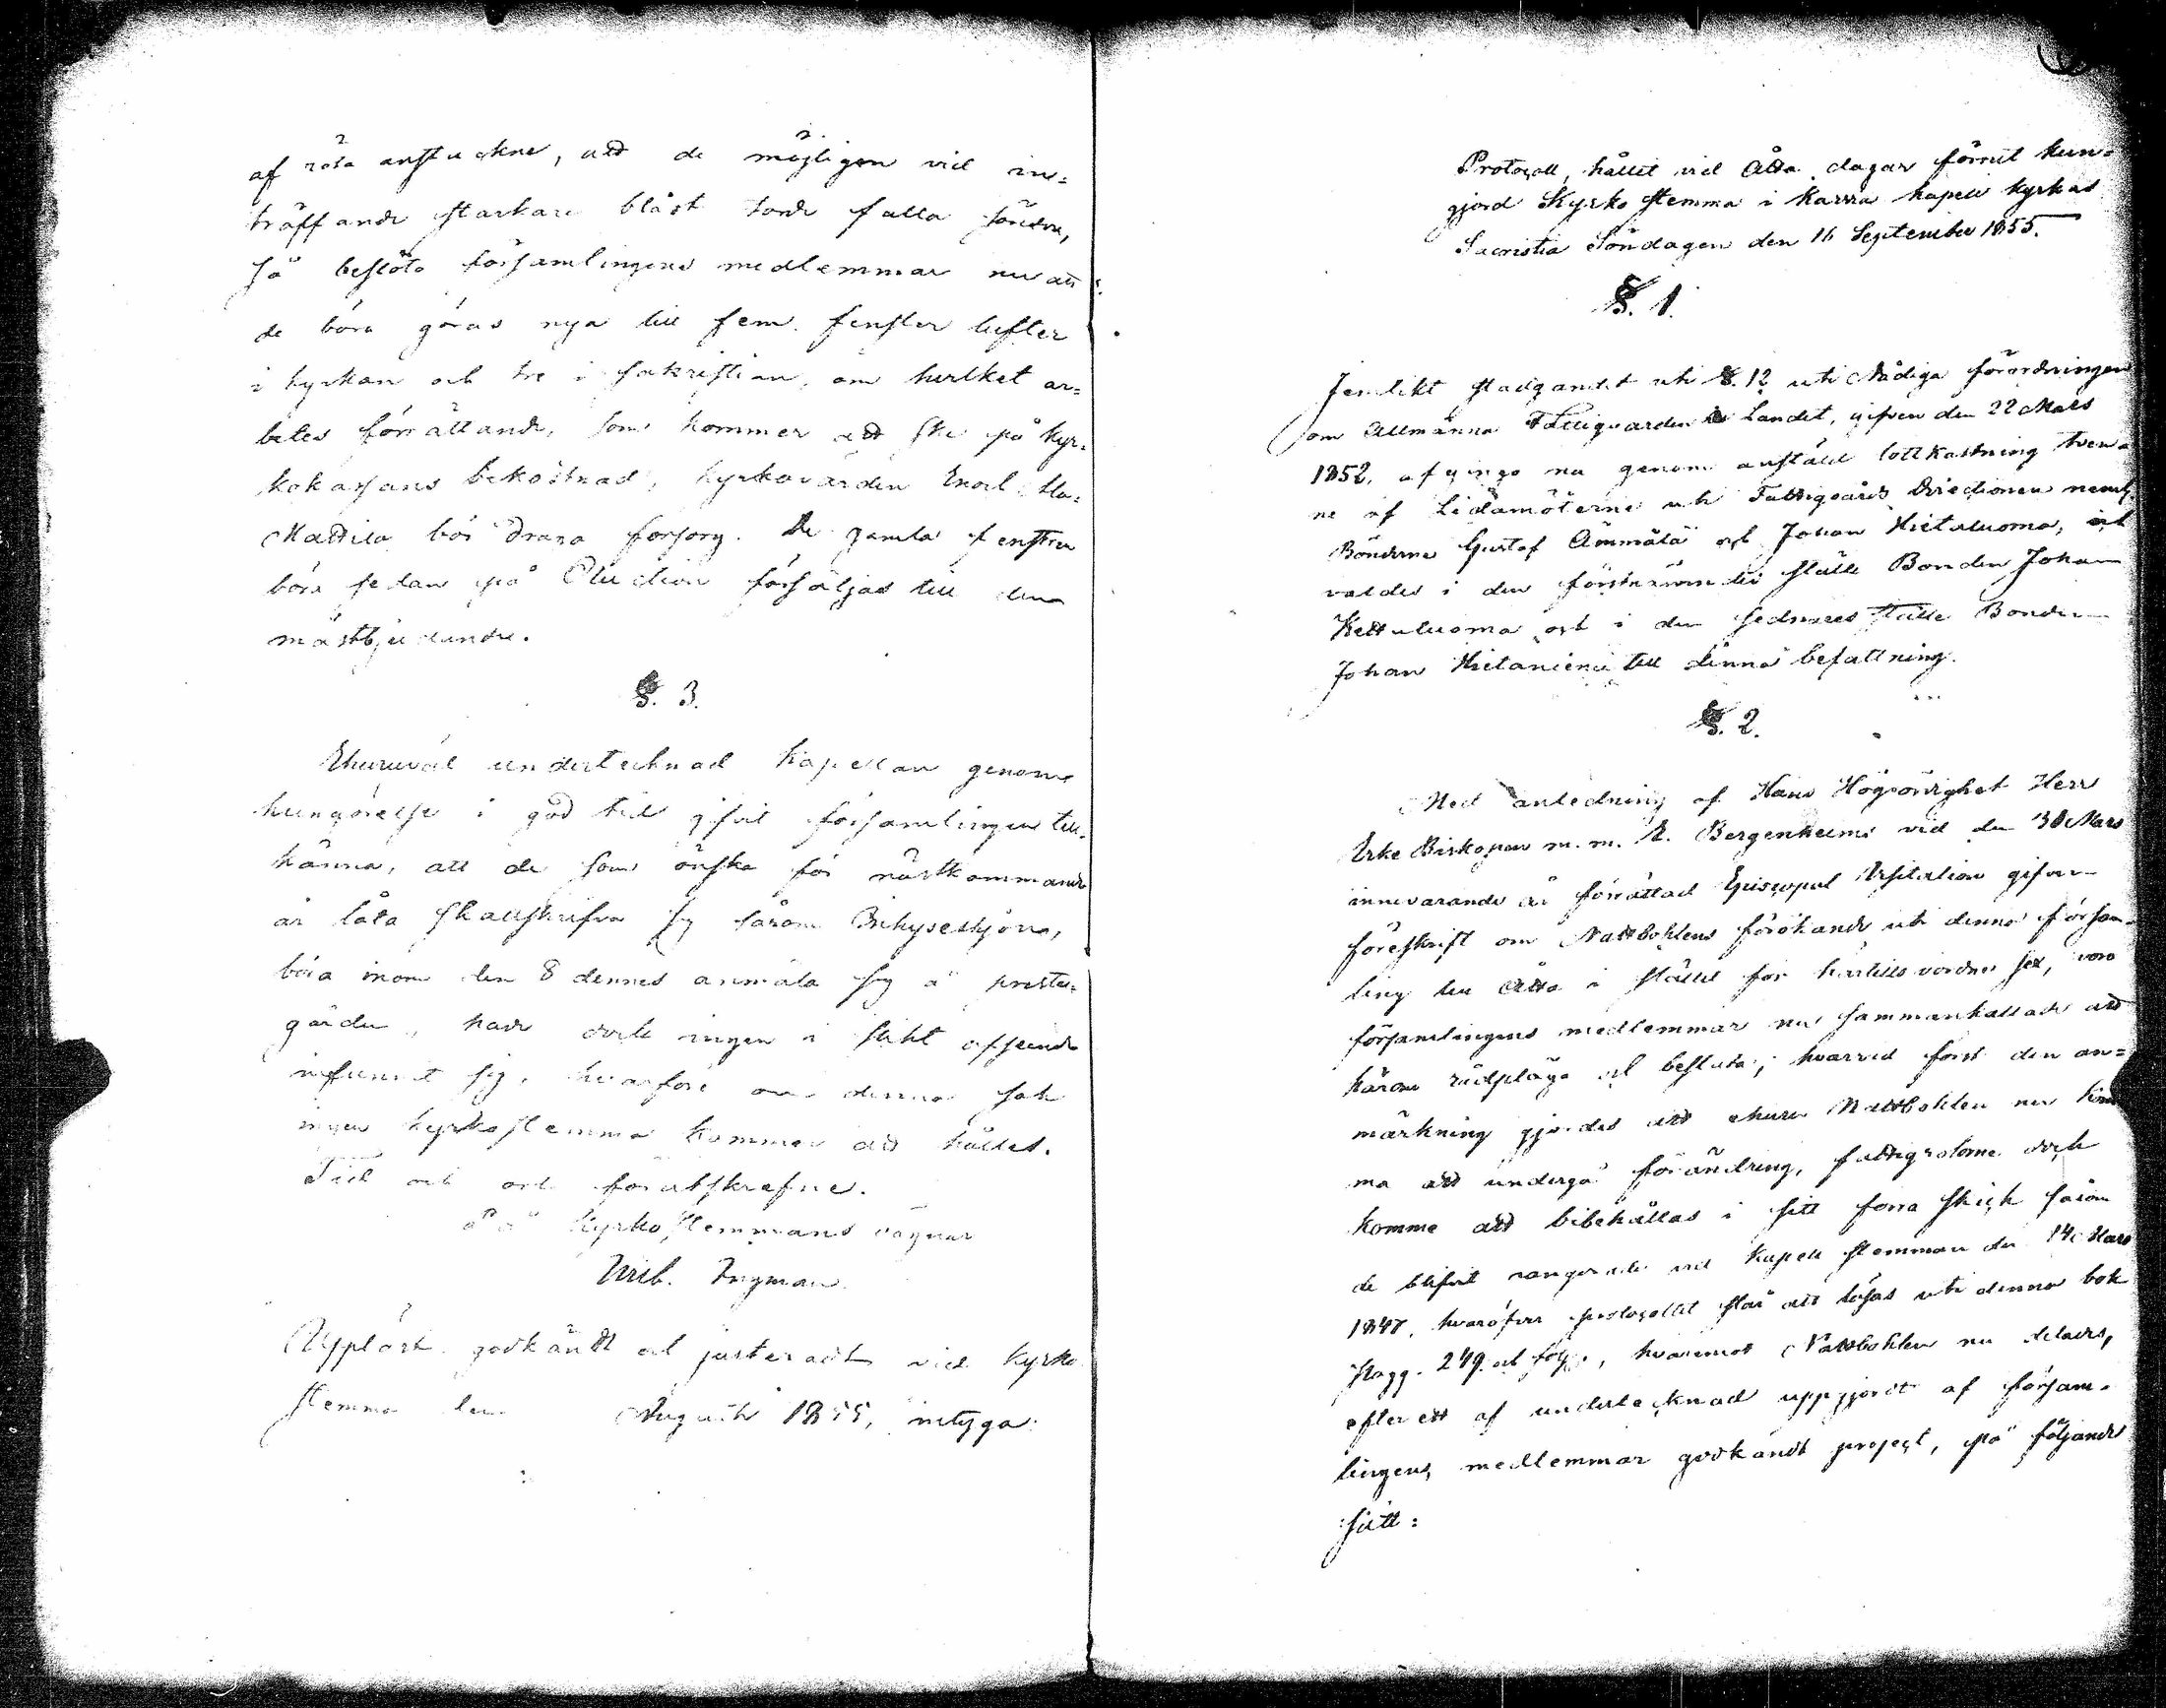 af röta anstuckne, att de möjligen vid in=
träffande starkare blåst torde falla sönder,
så beslöto församlingens medlemmar nu att
de böra göras nya till fem fenster lufter
i kyrkan och tre i sakristian, om hvilket ar=
betes förrättande, som kommer att ske på kyr=
kokassans bekostnad, kyrkovärden
Mattila bör draga försorg. De gamla fenstren
böra sedan på Auction försäljas till den
mästbjudande.
§. 3.
Ehuruväl undertecknad Kapellan genom
kungörelse i god tid gifvit församlingen till=
känna, att de som önska för nästkommande
år låta skattskrifva sig såsom Inhyseshjon,
böra inom den 8 dennes anmäla sig å preste=
gården, hade dock ingen i slikt afseende
infunnit sig, hvarföre om denna sak
ingen kyrkostemma kommer att hållas.
Tid och ort förutskrefne.
På Kyrkostemmans vägnar
Ingman
Uppläst, godkändt och justeradt vid Kyrko
stemma den Augusti 1855, intyga:
Protocoll, hållit vid Åtta dagar förrut kun=
gjord Kyrkostemma i Karvia kapell kyrkas
Sacristia Söndagen den 16 September 1855.
§. 1.
Jemlikt stadgandet uti §. 12 uti Nådiga förordningen
om Allmänna Fattigvården i Landet, gifven den 22 Mars
1852, afgingo nu genom anstäld lottkastning tven=
ne af Ledamöterne uti Fattigvårds Directionen neml.
Bönderne Gustaf Ämmälä och Johan Hietaluoma, och
valdes i den förstnämndes ställe Bonden Johan
Kettuluoma och i den sednares ställe Bonden
Johan Hietaniemi till denna befattning.
§. 2.
Med anledning af Hans Högvördighet Herr
Erke Biskopen m. m. E. Bergenheims vid den 30 Mars
innevarande år förrättad Episcopal Visitation gifven
föreskrift om Nattbohlens förökande uti denna försam=
ling till Åtta i stället för härtills vordne sex, voro
församlingens medlemmar nu sammankallade att
härom rådpläga och besluta; hvarvid först den an=
märkning gjordes att ehuru Nattbohlen nu kom
ma att undergå förändring, fattigrotorne dock
komme att bibehållas i sitt förra skick såsom
de blifvit rangerade vid Kapell stemman den 14 Mars
1847, hvaröfver protocollet står att läsas uti denna bok
pagg. 249 och följ., hvaremot Nattbohlen nu delades,
efter ett af undertecknad uppgjordt af försam=
lingens medlemmar godkändt project, på följande
sätt: